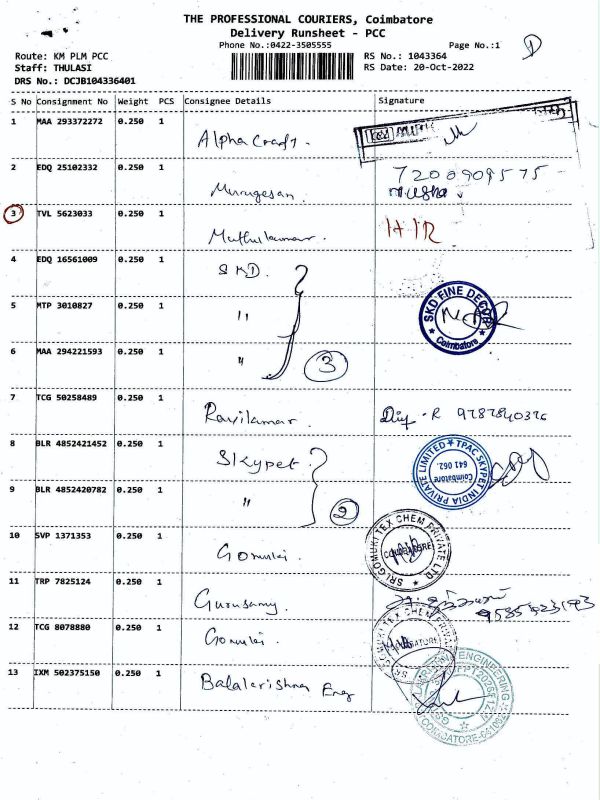 THE PROFESSIONAL COURIERS, Coimbatore
Delivery Runsheet - PCC
Phone No.:0422-3505555 Page No.:1 D
Route: KM PLM PCC RS No.: 1043364
Staff: THULASI RS Date: 20-Oct-2022
DRS No.: DCJB104336401
S No Consignment No Weight PCS Consignee Details Signature
1 MAA 293372272 0.250 1 Alpha Craft.
2 EDQ 25102332 0.250 1 Murugesan. 7200909575
3 TVL 5623033 0.250 1 Muthukumar. H/R
4 EDQ 16561009 0.250 1 SKD.
SKD FINE DECOR
Coimbatore
5 MTP 3010827 0.250 1 "
6 MAA 294221593 0.250 1 " 3
7 TCG 50258489 0.250 1 Ravikumar.
8 BLR 4852421452 0.250 1 Skypet
TPAC SKYPET INDIA PRIVATE LIMITED
Coimbatore
641 062.
9 BLR 4852420782 0.250 1 " 2
10 SVP 1371353 0.250 1 Gomuki.
SRI GOMUKI TEX CHEM PRIVATE LTD
COIMBATORE
11 TRP 7825124 0.250 1 Gurusamy.
12 TCG 8078880 0.250 1 Gomuki.
13 IXM 502375150 0.250 1 Balakrishna Eng